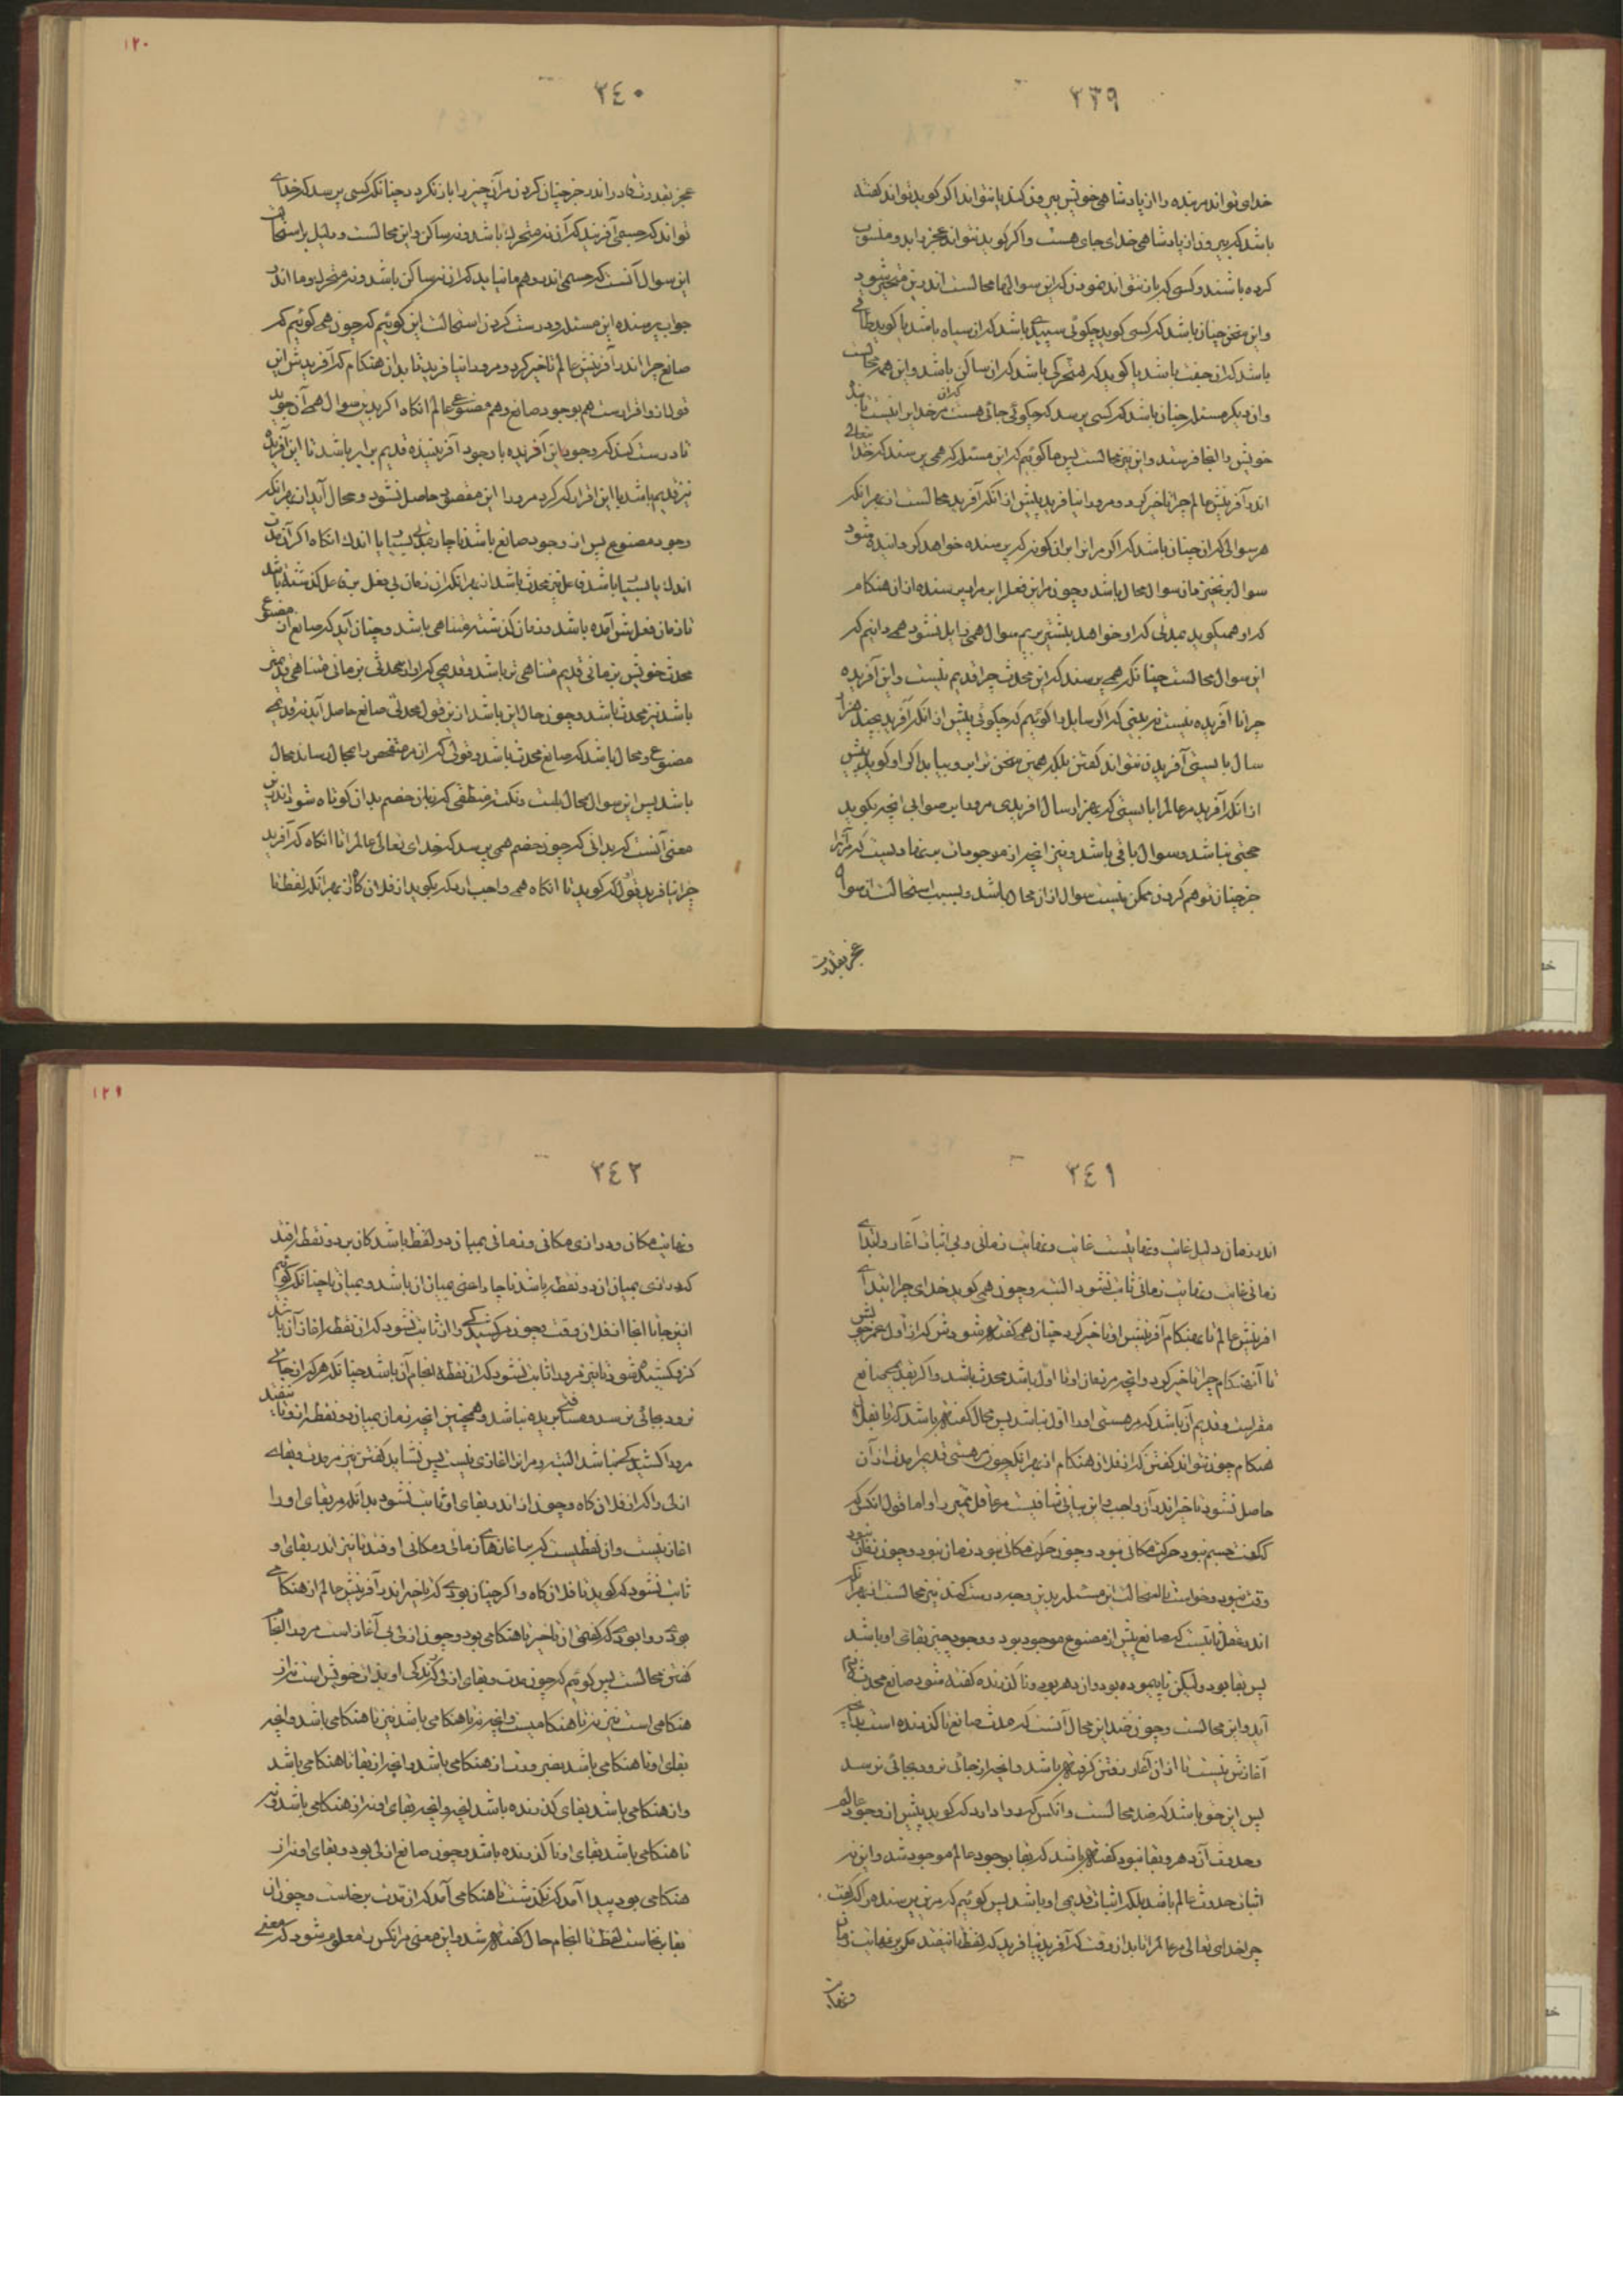 ۳۳۹
خدای تواند مر بنده را از پادشاهی خویش بیرون کند یا نتواند اگر گوید تواند گفته
باشد که بیرون از پادشاهی خدای جای هست و اگر گوید نتواند عجز را بدو منسوب
کرده باشند و کسی که باز نتواند نمودن که این سوالها محالست اندرین متحیر شود
و این سخن چنان باشد که کسی گوید چگوئی سپیدی باشد که آن سیاه باشد یا گوید طاقی
باشد که آن جفت باشد یا گوید که متحرکی باشد که آن ساکن باشد و این همه محالست
و آن دیگر مسئله چنان باشد که کسی پرسد که چگوئی جائی هست که آن مر خدایرا نیست تا بنده
خویش را آنجا فرستد و این نیز محالست پس ما گوئیم که این مسئله که همی پرسند که خدا تعالی
اندر آفرینش عالم چرا تاخیر کرد و مرو را نیافرید پیش از انکه آفرید محالست از بهر آنکه
هر سوالی که آن چنان باشد که اگر مر آنرا بر آن گونه که پرسنده خواهد گردانیده شود
سوال بر نخیزد آن سوال محال باشد و چون مر این فعل را بمراد پرسنده از آن هنگام
که او همیگوید بمدتی که او خواهد پیشتر بریم سوال همی زایل نشود همی دانیم که
این سوال محالست چنانکه همی پرسند که این محدث چرا قدیم نیست و این آفریده
چرا نا آفریده نیست نه بینی که اگر سایل را گوئیم که چگوئی پیش از انکه آفرید بچند هزار
سال بایستی آفریدن نتواند گفتن بلکه همین سخن برابر او بیاید اگر او گوید پیش
از انکه آفرید مر عالم را بایستی که بهزار سال آفریدی مرورا بر صوابی آنچه بگوید
حجتی نباشد و سوال باقی باشد و نیز آنچه از موجودات بر نهادیست که مر آنرا
جز چنان توهم کردن ممکن نیست سوال از آن محال باشد و بسبب استحالت از سوال
عجز بقدرت
۳۴۰
۱۲۰
عجز بقدرت قادر اندر جز چنان کردن مر آن چیز را باز نگردد چنانکه کسی پرسد که خدای
تواند که جسمی آفریند که آن نه متحرک باشد و نه ساکن و این محالست و دلیل بر استحالت
این سوال آنست که جسمی اندر وهم ما نیاید که آن نه ساکن باشد و نه متحرک و ما اندر
جواب پرسنده این مسئله و درست کردن استحالت این گوئیم که چون همی گوئیم که
صانع چرا اندر آفرینش عالم تاخیر کرد و مرورا نیافرید تا بدان هنگام که آفریدش این
قول ازو اقرار است هم بوجود صانع و هم مصنوعی عالم آنگاه اگر بدین سوال همی آن جوید
تا درست کند که وجود این آفریده با وجود آفریننده قدیم برابر باشد تا این آفریده
نیز قدیم باشد با این اقرار که کرد مرورا این مقصود حاصل نشود و محال آید از بهر آنکه
وجود مصنوع پس از وجود صانع باشد ناچار بمدتی بسیار یا اندک آنگاه اگر آن مدت
اندک یا بسیار باشد فاعل نیز محدث باشد از بهر آنکه آن زمان بی فعل برو علی گذشته باشد
تا زمان فعلش آمده باشد و زمان گذشته متناهی باشد و چنان آید که صانع از مصنوع
محدث خویش بزمانی قدیم متناهی تر باشد و قدیمی که او از محدثی بزمانی متناهی قدیمتر
باشد نیز محدث باشد و چون حال این باشد ازین قول محدثی صانع حاصل آید نه قدیمی
مصنوع و محال باشد که صانع محدث باشد و قولی که آن مر متفحص را بمحال رساند محال
باشد پس این سوال محال است و نکته منطقی که زبان خصم بدان کوتاه شود اندرین
معنی آنست که بدانی که چون خصم همی پرسد که خدای تعالی عالم را تا آنگاه که آفرید
چرا نیافرید بقول که گوید تا آنگاه همی واجب آرد که بگوید از فلان گاه از بهر آنکه لفظ تا
۳۴۱
اندر زمان دلیل غایت و نهایتست غایت و نهایت زمانی و بی اثبات آغاز و ابتدای
زمانی غایت و نهایت زمانی ثابت نشود البته و چون همی گوید خدای چرا ابتدای
آفرینش عالم تا بهنگام آفرینش او تاخیر کرد چنان همی گفته شودش که از اول عمر خویش
تا آنهنگام چرا تاخیر کرد و آنچه مر زمان او را اول باشد محدث باشد و اگر بقدیمی صانع
مقراست و قدیم آن باشد که مر هستی او را اول نباشد پس محال گفته باشد که تا بفلان
هنگام چون نتواند گفتن که از فلان هنگام از بهر آنکه چون مر هستی قدیم را مدت از آن
حاصل نشود تاخیر اندر آن واجب و این بیانی شافیست مر عاقل ممیز را و اما قول آنکس که
گفت جسم نبود حرکت مکانی نبود و چون حرکت مکانی نبود زمان نبود و چون زمان نبود
وقت نبود و خواست تا استحالت این مسئله بدین وجه درست کند نیز محالست از بهر آنکه
اندر عقل ثابتست که صانع پیش از مصنوع موجود بود و وجود چیز بقای او باشد
پس بقا بود ولیکن نا پیموده بود و آن دهر بود و نا گذرنده گفته شود صانع محدث قدیم
آید و این محالست و چون ضد این محال آنست که مدت صانع نا گذرنده است بدانچه
آغازش نیست تا از آن آغاز رفتن گرفته باشد و آنچه از جائی نرود بجائی نرسد
پس این حق باشد که ضد محالست و آنکس که روا دارد که گوید پیش از وجود عالم
و حدوث آن دهر و بقا نبود گفته باشد که بقا بوجود عالم موجود شد و این نه
اثبات حدوث عالم باشد بلکه اثبات قدیمی او باشد پس گوئیم که مرین پرسنده را که گفت
چرا خدای تعالی مر عالم را تا بدان وقت که آفرید نیافرید که لفظ تا نیفتد مگر بر نهایت زمان
و نهایت
۳۴۲
۱۲۱
و نهایت مکان و درازی مکانی و زمانی بمیان دو لفظ باشد کان بر دو نقطه افتد
که درازی بمیان آن دو نقطه باشد ناچار اعنی بمیان از باشد و بمیان تا چنانکه گوئیم
از اینجا تا آنجا از فلان وقت و چون مر کشیدگی را از ثابت نشود که آن نقطه آغاز آن باشد
کزو کشیده شود تا نیز مرورا ثابت نشود که آن نقطه انجام آن باشد چنانکه هر که از جای
نرود بجائی نرسد و مسافتی بریده نباشد و همچنین آنچه زمان بمیان دو نقطه از و تا نیفتد
مرورا کشیدگی نباشد البته و مر آنرا آغازی نیست پس نشاید گفتن نیز مر مدت و بقای
ازلی را که از فلان گاه و چون از اندر بقای او ثابت نشود بدانکه مر بقای او را
آغاز نیست و از لفظیست که بر آغازهای زمانی و مکانی اوفتد تا نیز اندر بقای او
ثابت نشود که گوید تا فلان گاه و اگر چنان بودی که تاخیر اندر آفرینش عالم از هنگامی
بودی روا بودی که گفتی آن تاخیر تا هنگامی بود و چون ازلی بی آغاز است مرورا انجام
گفتن محالست پس گوئیم که چون مدت و بقای ازلی که زندگی او بذات خویش است نه از
هنگامی است نیز نه تا هنگامیست و آنچه نه تا هنگامی باشد نیز تا هنگامی باشد و آنچه
بقای او تا هنگامی باشد بضرورت از هنگامی باشد و آنچه از بقا تا هنگامی باشد
و از هنگامی باشد بقای گذرنده باشد آنچه و آنچه بقای او نه از هنگامی باشد و نه
تا هنگامی باشد بقای او نا گذرنده باشد و چون صانع ازلی بود و بقای او نه از
هنگامی بود پیدا آمد که نگذشت تا هنگامی آمد که از مدت برخاست و چون از
بقا برخاست لفظ تا انجام حال گفته شد و این معنی مر آنکس را معلوم شود که معنی